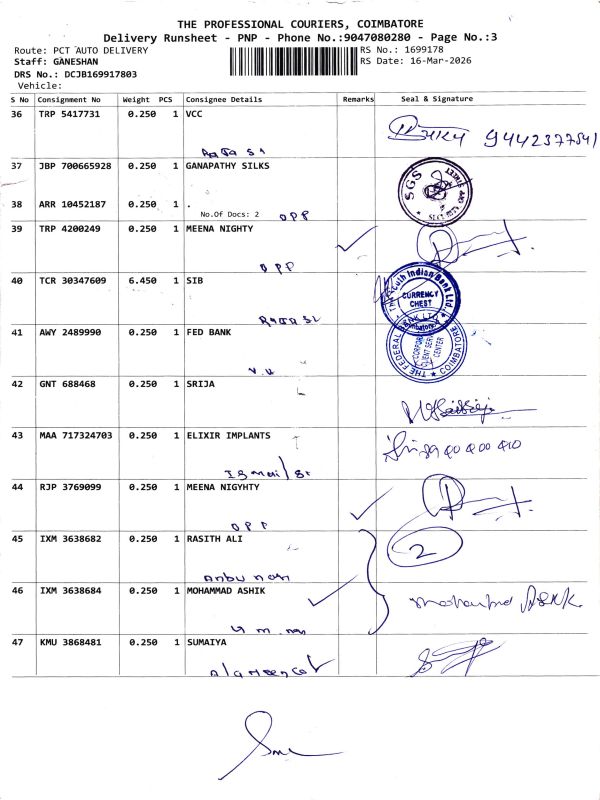 THE PROFESSIONAL COURIERS, COIMBATORE
Delivery Runsheet - PNP - Phone No.:9047080280 - Page No.:3
Route: PCT AUTO DELIVERY
RS No.: 1699178
Staff: GANESHAN
RS Date: 16-Mar-2026
DRS No.: DCJB169917803
Vehicle:
S No Consignment No Weight PCS Consignee Details Remarks Seal & Signature
36 TRP 5417731 0.250 1 VCC
9442377541
37 JBP 700665928 0.250 1 GANAPATHY SILKS
SGS
38 ARR 10452187 0.250 1 .
No.Of Docs: 2 OPP
39 TRP 4200249 0.250 1 MEENA NIGHTY
OPP
40 TCR 30347609 6.450 1 SIB
South Indian Bank Ltd.
CURRENCY
CHEST
Coimbatore
41 AWY 2489990 0.250 1 FED BANK
THE FEDERAL BANK LTD
COIMBATORE
42 GNT 688468 0.250 1 SRIJA
43 MAA 717324703 0.250 1 ELIXIR IMPLANTS
44 RJP 3769099 0.250 1 MEENA NIGYHTY
OPP
45 IXM 3638682 0.250 1 RASITH ALI
2
46 IXM 3638684 0.250 1 MOHAMMAD ASHIK
47 KMU 3868481 0.250 1 SUMAIYA